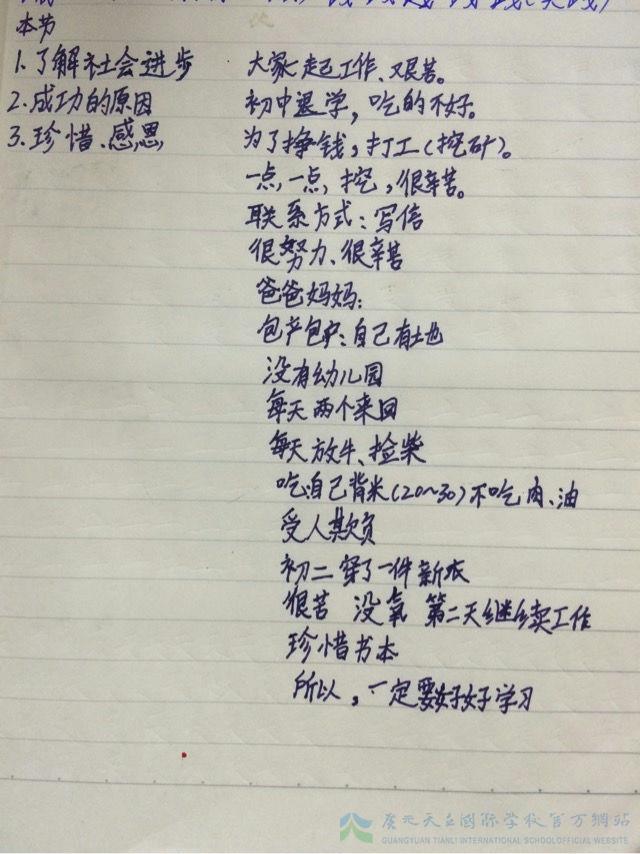 本节
1.了解社会进步
2.成功的原因
3.珍惜、感恩
大家一起工作、艰苦。
初中退学，吃的不好。
为了挣钱，打工（挖矿）。
一点，一点，挖，很辛苦。
联系方式：写信
很努力、很辛苦
爸爸妈妈：
包产包户：自己有土地
没有幼儿园
每天两个来回
每天放牛、捡柴
吃自己背米（20~30）不吃肉、油
受人欺负
初二穿了一件新衣
很苦 没氧 第二天继续工作
珍惜书本
所以，一定要好好学习
广元天立国际学校官方网站
GUANGYUAN TIANLI INTERNATIONAL SCHOOLOFFICIAL WEBSITE